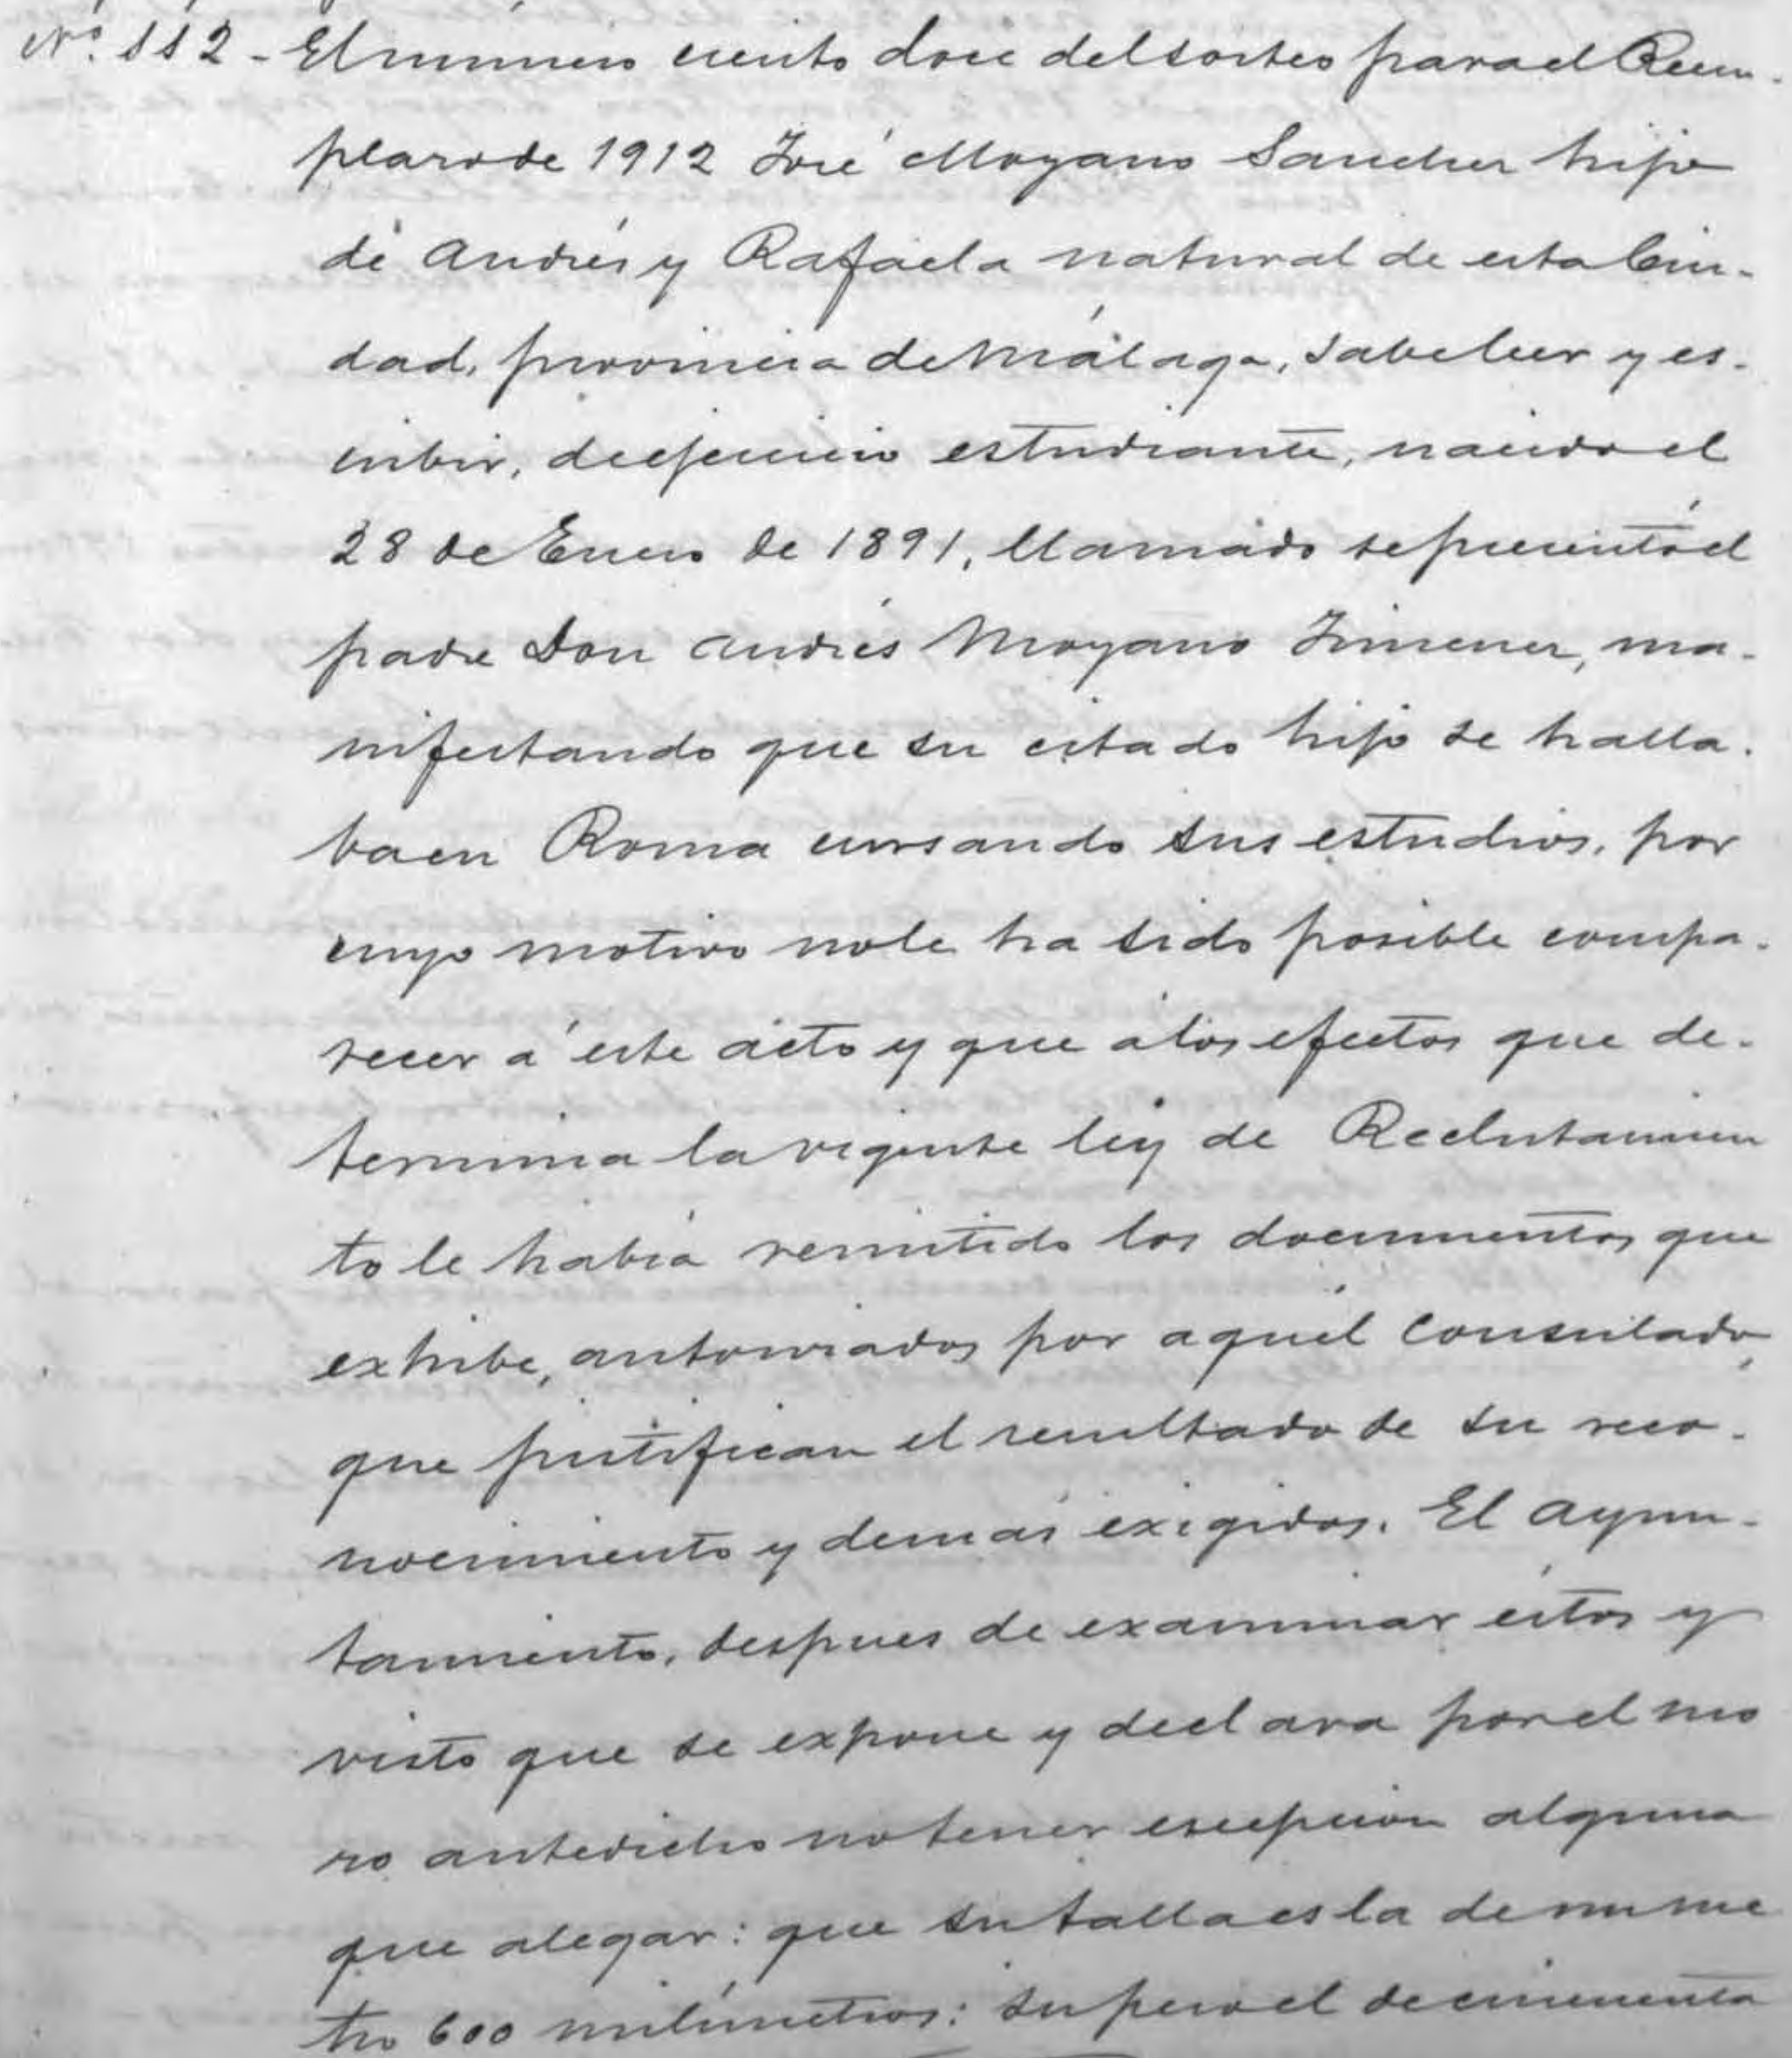 Nº. 112 - El número ciento doce del sorteo para el Reem-
plazo de 1912 José Moyano Sanchez hijo
de Andrés y Rafaela natural de esta Ciu-
dad, provincia de Málaga, sabe leer y es-
cribir, de ejercicio estudiante, nacido el
28 de Enero de 1891, llamado se presentó el
padre Don Andrés Moyano Jimenez, ma-
nifestando que su citado hijo se halla-
ba en Roma cursando sus estudios, por
cuyo motivo no le ha sido posible compa-
recer á este acto y que á los efectos que de-
termina la vigente ley de Reclutamien
to le había remitido los documentos que
exhibe, autorizados por aquél Consulado,
que justifican el resultado de su reco-
nocimiento y demás exigidos. El Ayun-
tamiento, despues de examinar éstos y
visto que se expone y declara por el mo
zo antedicho no tener escepcion alguna
que alegar: que su talla es la de un me
tro 600 milímetros: su peso el de cincuenta